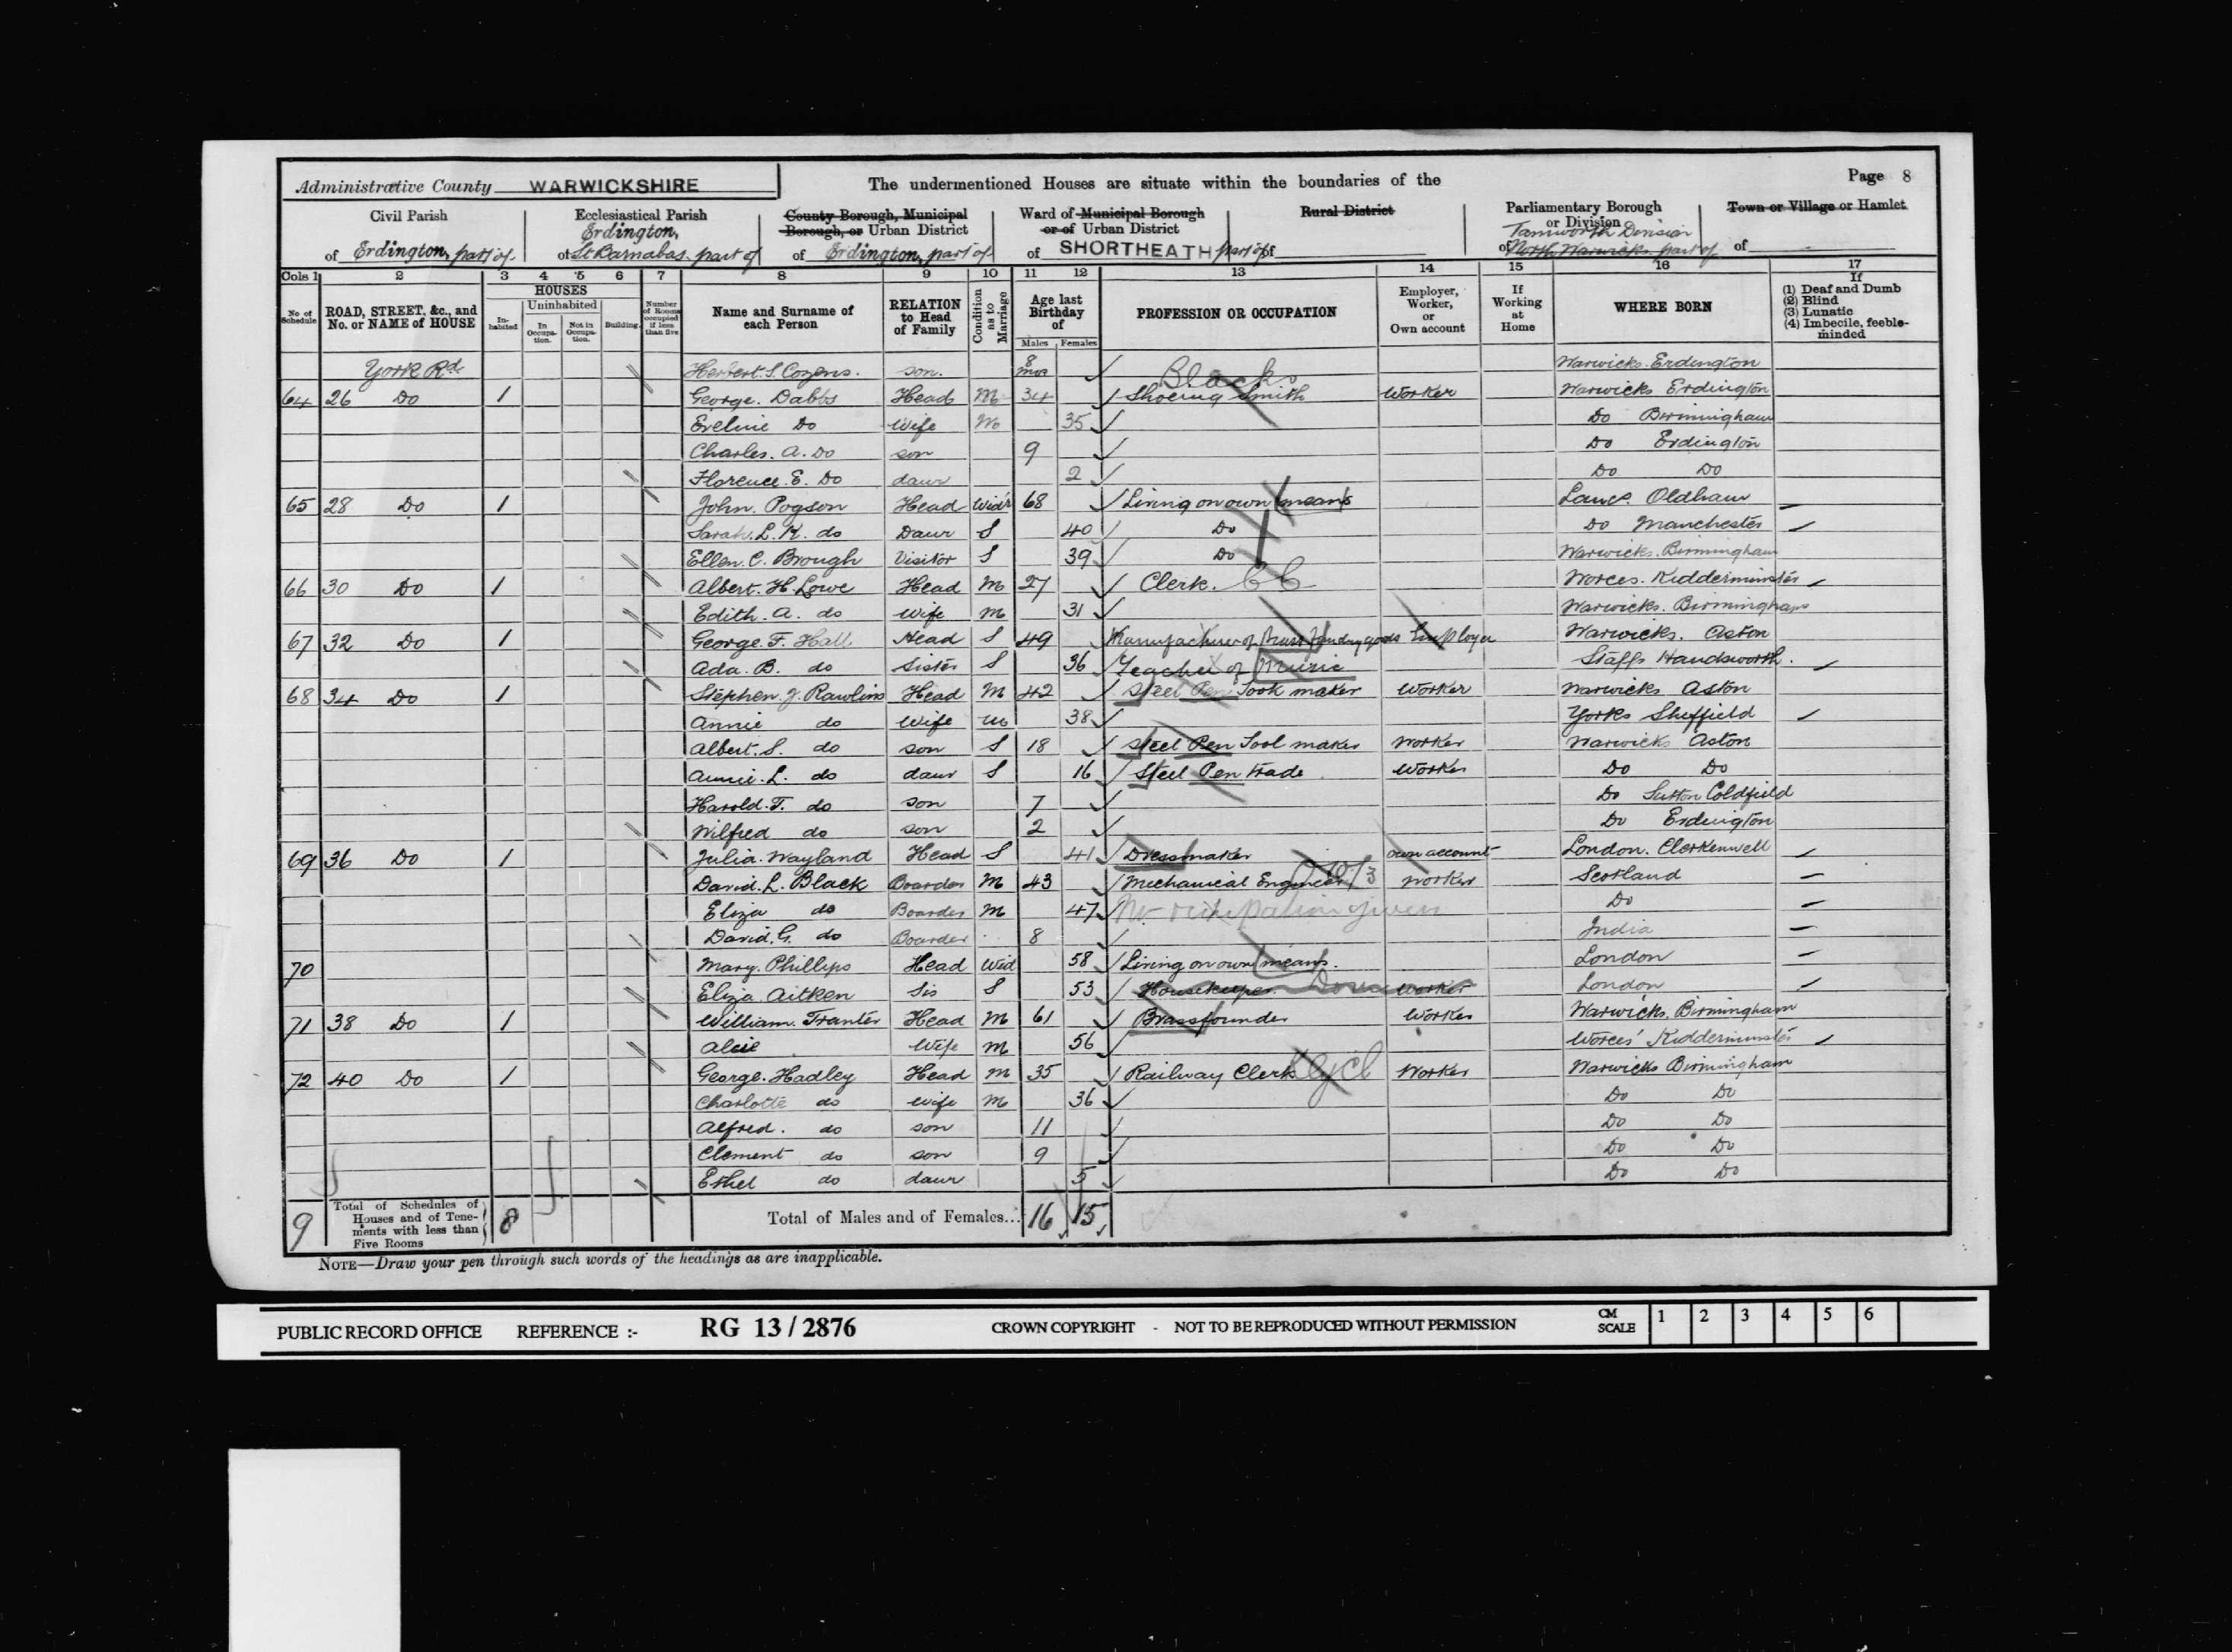 Administrative County WARWICKSHIRE The undermentioned Houses are situate within the boundaries of the Page 8
Civil Parish of Erdington, part of
Ecclesiastical Parish of Erdington, St Barnabas, part of
County Borough, Municipal Borough, or Urban District of Erdington, part of
Ward of Municipal Borough or of Urban District of SHORTHEATH part of
Rural District of
Parliamentary Borough or Division of Tamworth Division North Warwick part of
Town or Village or Hamlet of
Cols 1 2 3 4 5 6 7 8 9 10 11 12 13 14 15 16 17
No of Schedule
ROAD, STREET, &c., and No. or NAME of HOUSE
HOUSES
In-habited
Uninhabited
In Occupa-tion.
Not in Occupa-tion.
Building.
Number of Rooms occupied if less than five
Name and Surname of each Person
RELATION to Head of Family
Condition as to Marriage
Age last Birthday of
Males Females
PROFESSION OR OCCUPATION
Employer, Worker, or Own account
If Working at Home
WHERE BORN
If
(1) Deaf and Dumb
(2) Blind
(3) Lunatic
(4) Imbecile, feeble-minded
York Rd Herbert. S. Cozens. son. 8 mos Warwicks. Erdington
64 26 Do 1 George. Dabbs Head M 34 Shoeing Smith Blacks Worker Warwicks Erdington
Eveline Do Wife M 35 Do Birmingham
Charles. A. Do son 9 Do Erdington
Florence. E. Do daur 2 Do Do
65 28 Do 1 John. Pogson Head Widr 68 Living on own means Lancs. Oldham
Sarah. L. K. do Daur S 40 Do Do Manchester
Ellen. C. Brough Visitor S 39 Do Warwicks. Birmingham
66 30 Do 1 Albert. H. Lowe Head M 27 Clerk. Worces. Kidderminster
Edith. A. do Wife M 31 Warwicks. Birmingham
67 32 Do 1 George. F. Hall Head S 49 Manufacturer of Brass Foundry goods Employer Warwicks. Aston
Ada. B. do Sister S 36 Teacher of Music Staffs Handsworth.
68 34 Do 1 Stephen. J. Rawlins Head M 42 Steel Pen Tool maker Worker Warwicks Aston
Annie do Wife M 38 Yorks Sheffield
Albert. S. do son S 18 Steel Pen Tool maker Worker Warwicks Aston
Annie. L. do daur S 16 Steel Pen trade Worker Do Do
Harold. F. do son 7 Do Sutton Coldfield
Wilfred do son 2 Do Erdington
69 36 Do 1 Julia. Wayland Head S 41 Dressmaker own account London. Clerkenwell
David. L. Black Boarder M 43 Mechanical Engineer Worker Scotland
Eliza do Boarder M 47 No occupation given Do
David. G. do Boarder 8 India
70 Mary. Phillips Head Wid 58 Living on own means. London
Eliza Aitken Sis S 53 Housekeeper. Dom Worker London
71 38 Do 1 William. Tranter Head M 61 Brassfounder Worker Warwicks. Birmingham
Alcie Wife M 56 Worces' Kidderminster
72 40 Do 1 George. Hadley Head M 35 Railway Clerk Worker Warwicks Birmingham
Charlotte do Wife M 36 Do Do
Alfred. do son 11 Do Do
Clement do son 9 Do Do
Ethel do daur 5 Do Do
9 Total of Schedules of Houses and of Tene-ments with less than Five Rooms 8 Total of Males and of Females... 16 15
NOTE—Draw your pen through such words of the headings as are inapplicable.
PUBLIC RECORD OFFICE REFERENCE :- RG 13 / 2876 CROWN COPYRIGHT - NOT TO BE REPRODUCED WITHOUT PERMISSION CM SCALE 1 2 3 4 5 6